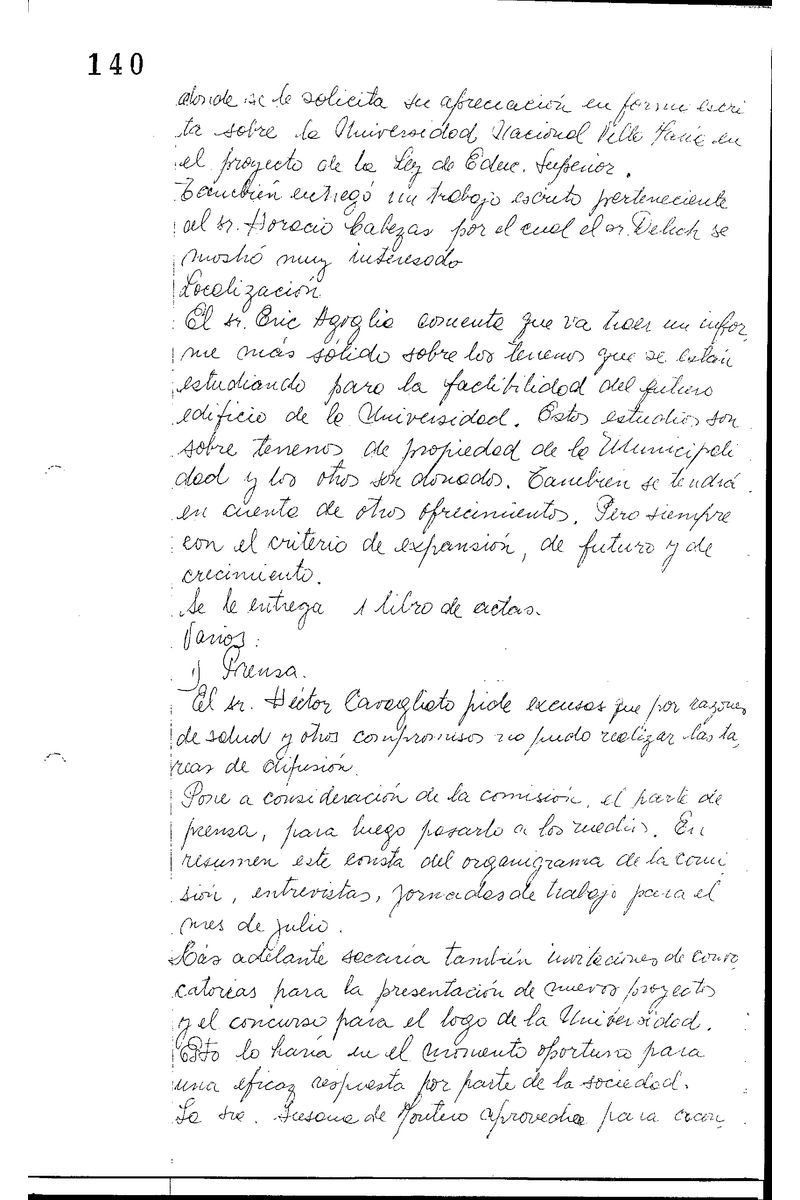 140
donde se le solicita su apreciación en forma escri
ta sobre la Universidad Nacional Villa María en
el proyecto de la Ley de Educ. Superior.
También entregó un trabajo escrito perteneciente
al sr. Horacio Cabezas por el cual el sr. Delich se
mostró muy interesado
Localización
El sr. Eric Agoglia comenta que va traer un infor,
me más sólido sobre los terrenos que se están
estudiando para la factibilidad del futuro
edificio de la Universidad. Estos estudios son
sobre terrenos de propiedad de la Municipali
dad y los otros son donados. También se tendrá
en cuenta de otros ofrecimientos. Pero siempre
con el criterio de expansión, de futuro y de
crecimiento.
Se le entrega 1 libro de actas.
Varios:
1) Prensa.
El sr. Héctor Cavagliato pide excusas que por razones
de salud y otros compromisos no pudo realizar las ta,
reas de difusión.
Pone a consideración de la comisión, el parte de
prensa, para luego pasarlo a los medios. En
resumen este consta del organigrama de la comi
sión, entrevistas, jornadas de trabajo para el
mes de julio.
Más adelante sacaría también invitaciones de convo,
catorias para la presentación de nuevos proyectos
y el concurso para el logo de la Universidad.
Esto lo haría en el momento oportuno para
una eficaz respuesta por parte de la sociedad.
La sra. Susana de Montero aprovecha para